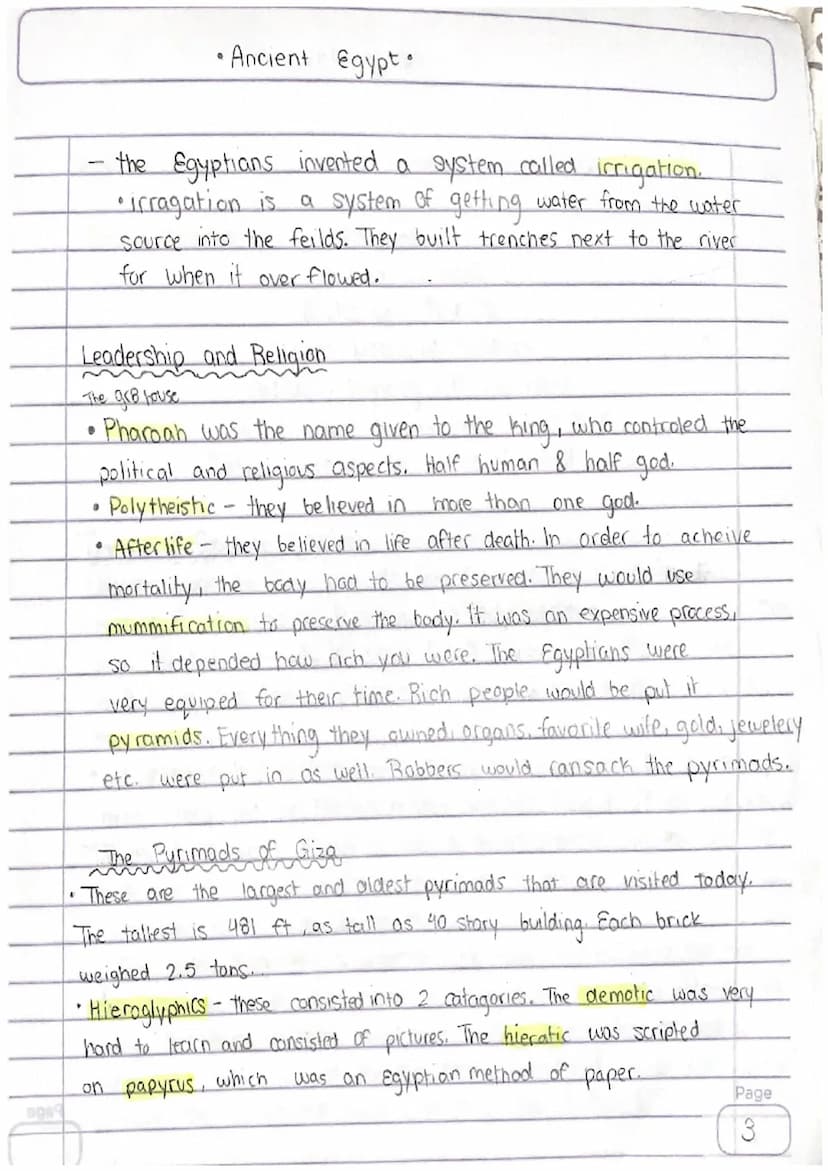 • Ancient Egypt •
- the Egyptians invented a system called irrigation.
• irragation is a system of getting water from the water
source into the feilds. They built trenches next to the river
for when it over flowed.
Leadership and Religion
The gr8 house
• Pharoah was the name given to the king, who controled the
political and religious aspects. Half human & half god.
• Polytheistic - they believed in more than one god.
• Afterlife - they believed in life after death. In order to acheive
mortality, the body had to be preserved. They would use
mummification to preserve the body. It was an expensive process,
so it depended how rich you were. The Egyptians were
very equiped for their time. Rich people would be put it
pyramids. Everything they owned, organs, favorite wife, gold, jewelery
etc. were put in as well. Robbers would ransack the pyrimads.
The Pyrimads of Giza
• These are the largest and oldest pyrimads that are visited today.
The tallest is 481 ft, as tall as 40 story building. Each brick
weighed 2.5 tons.
• Hieroglyphics - these consisted into 2 catagories. The demotic was very
hard to learn and consisted of pictures. The hieratic was scripted
on papyrus, which was an Egyptian method of paper.
Page
3